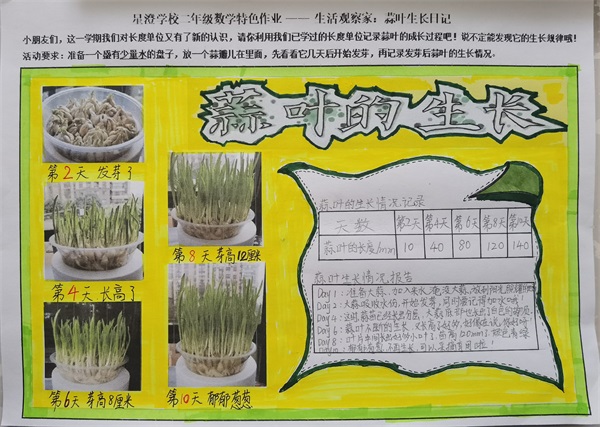 星澄学校二年级数学特色作业 —— 生活观察家：蒜叶生长日记
小朋友们，这一学期我们对长度单位又有了新的认识，请你利用我们已学过的长度单位记录蒜叶的成长过程吧！说不定能发现它的生长规律哦！
活动要求：准备一个盛有少量水的盘子，放一个蒜瓣儿在里面，先看看它几天后开始发芽，再记录发芽后蒜叶的生长情况。
蒜叶的生长
第2天 发芽了
第4天 长高了
第6天 芽高8厘米
第8天 芽高12厘米
第10天 郁郁葱葱
蒜叶的生长情况记录
天数 第2天 第4天 第6天 第8天 第10天
蒜叶的长度/mm 10 40 80 120 140
蒜叶生长情况报告
Day 1：准备大蒜，加入米水，浸没大蒜，放到阳光
Day 2：大蒜吸收水份，开始发芽，同时要记得加水哦！
Day 4：这时，蒜苗已经长出
Day 6：蒜叶不断的生长
Day 8：叶片中间长出